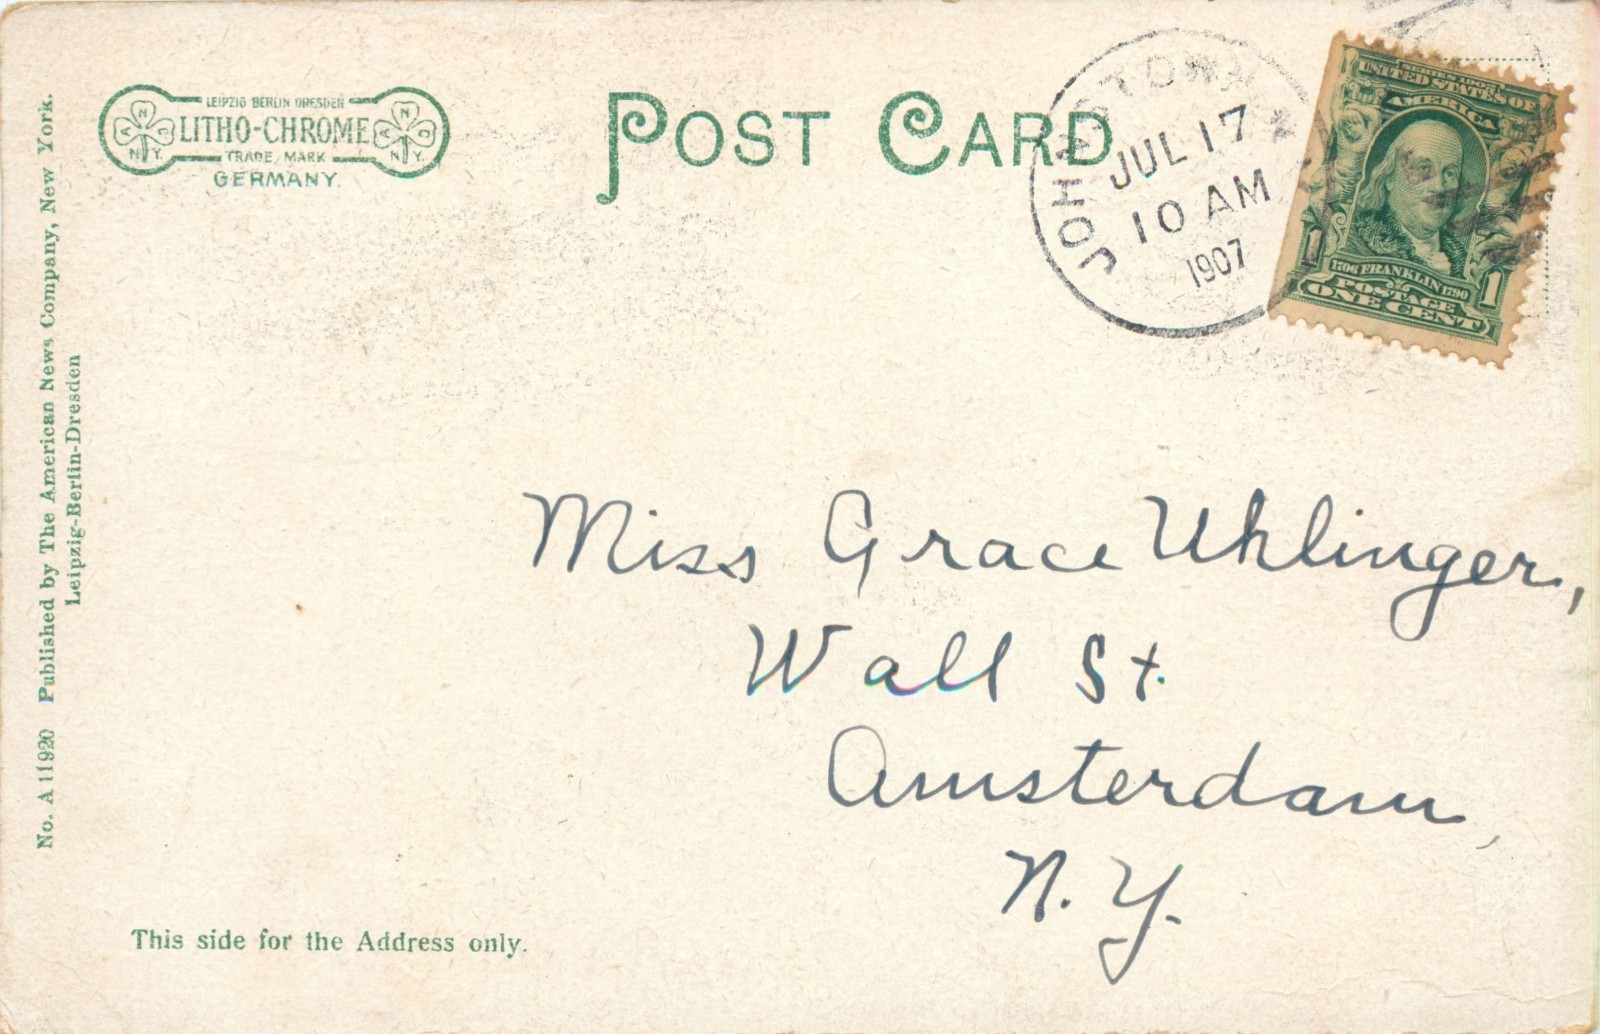 LEIPZIG BERLIN DRESDEN
LITHO-CHROME
TRADE MARK
GERMANY.
A N C
N.Y.
A N C
N.Y.
POST CARD
JOHNSTOWN N.
JUL 17
10 AM
1907
UNITED STATES OF
AMERICA
1706 FRANKLIN 1790
POSTAGE
1 ONE CENT 1
No. A 11920 Published by The American News Company, New York.
Leipzig-Berlin-Dresden
Miss Grace Uhlinger,
Wall St.
Amsterdam,
N. Y.
This side for the Address only.